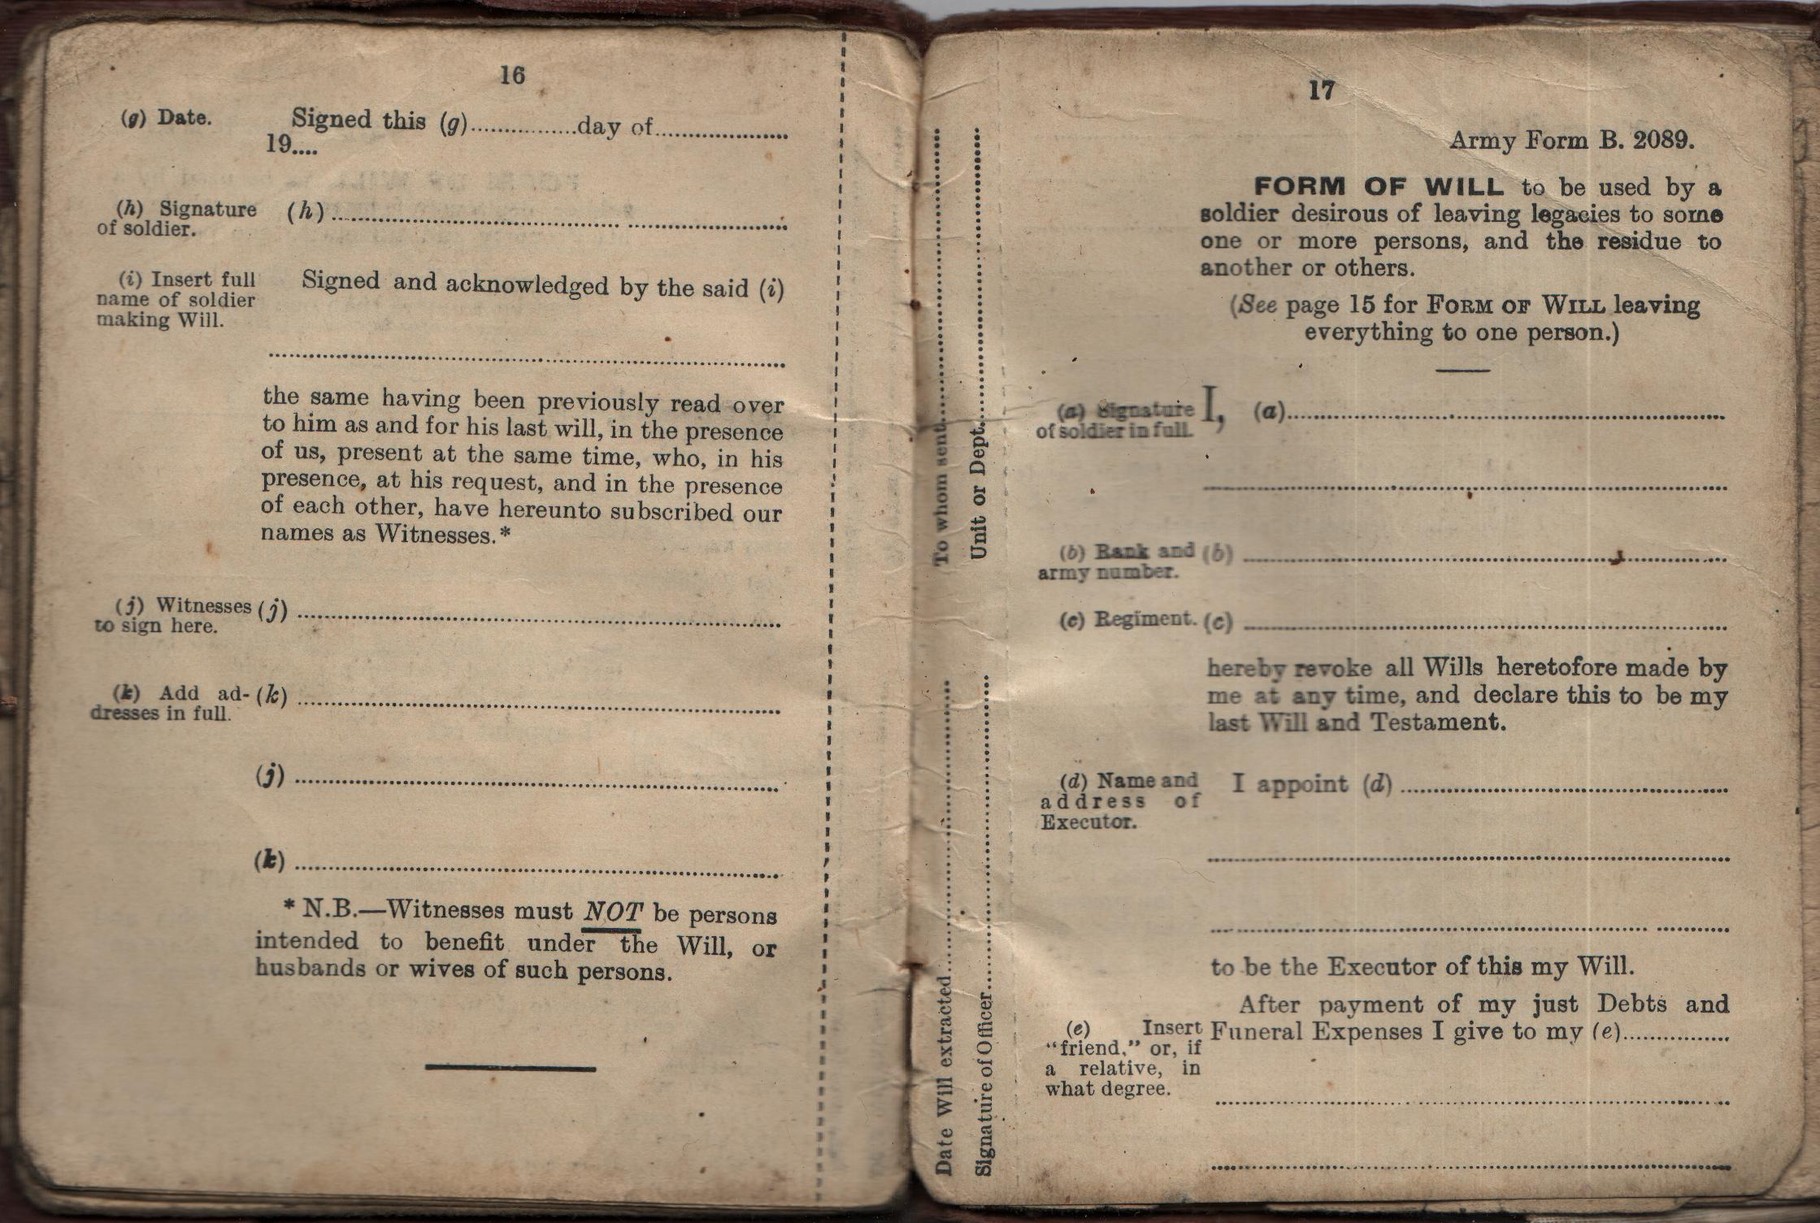 16
(g) Date. Signed this (g)...............day of..................
19....
(h) Signature of soldier. (h) ..................................................
(i) Insert full name of soldier making Will. Signed and acknowledged by the said (i)
..................................................
the same having been previously read over
to him as and for his last will, in the presence
of us, present at the same time, who, in his
presence, at his request, and in the presence
of each other, have hereunto subscribed our
names as Witnesses.*
(j) Witnesses to sign here. (j) ..................................................
(k) Add ad-dresses in full. (k) ..................................................
(j) ..................................................
(k) ..................................................
* N.B.—Witnesses must NOT be persons
intended to benefit under the Will, or
husbands or wives of such persons.
To whom sent..................
Unit or Dept..................
Date Will extracted..................
Signature of Officer..................
17
Army Form B. 2089.
FORM OF WILL to be used by a
soldier desirous of leaving legacies to some
one or more persons, and the residue to
another or others.
(See page 15 for FORM OF WILL leaving
everything to one person.)
(a) Signature of soldier in full. I, (a)..................................................
..................................................
(b) Rank and army number. (b) ..................................................
(c) Regiment. (c) ..................................................
hereby revoke all Wills heretofore made by
me at any time, and declare this to be my
last Will and Testament.
(d) Name and address of Executor. I appoint (d) ..................................................
..................................................
..................................................
to be the Executor of this my Will.
After payment of my just Debts and
Funeral Expenses I give to my (e)................
(e) Insert
"friend," or, if
a relative, in
what degree.
..................................................
..................................................